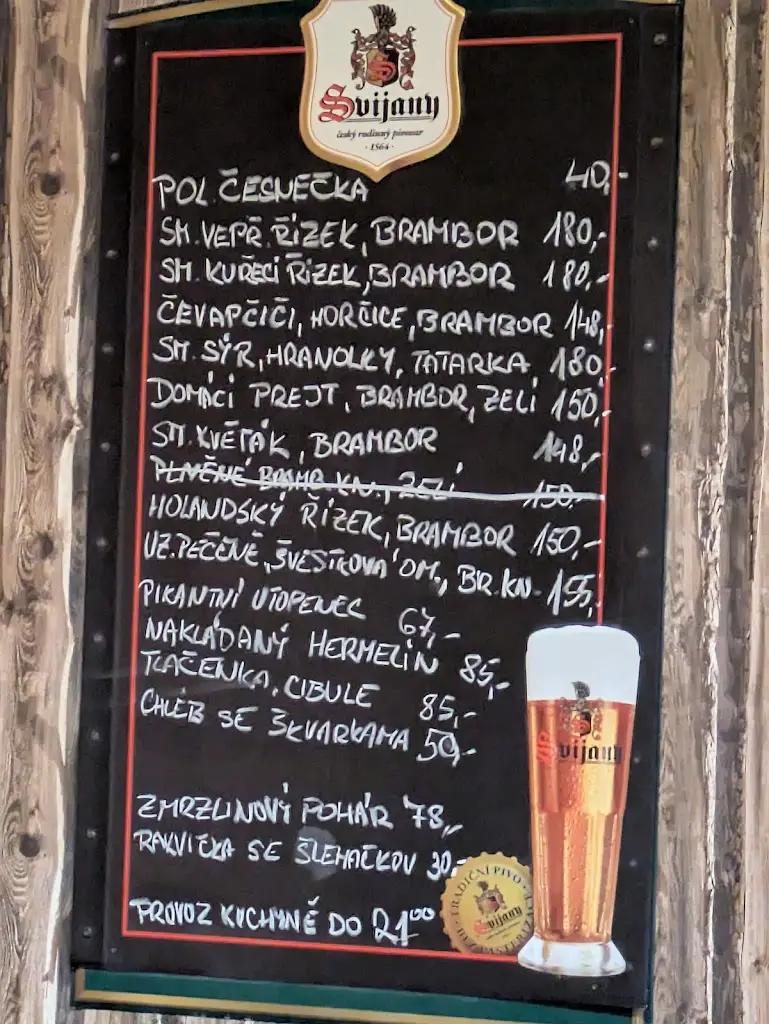 Svijany
český rodinný pivovar
· 1564 ·
POL. ČESNEČKA 40,-
SM. VEPŘ. ŘÍZEK, BRAMBOR 180,-
SM. KUŘECÍ ŘÍZEK, BRAMBOR 180,-
ČEVAPČIČI, HORČICE, BRAMBOR 148,-
SM. SÝR, HRANOLKY, TATARKA 180,-
DOMÁCÍ PREJT, BRAMBOR, ZELÍ 150,-
SM. KVĚŤÁK, BRAMBOR 148,-
PLNĚNÉ BRAMB. KN., ZELÍ 150,-
HOLANDSKÝ ŘÍZEK, BRAMBOR 150,-
UZ. PEČENĚ, ŠVESTKOVÁ OM., BR. KN. 155,-
PIKANTNÍ UTOPENEC 67,-
NAKLÁDANÝ HERMELÍN 85,-
TLAČENKA, CIBULE 85,-
CHLÉB SE ŠKVARKAMA 50,-
ZMRZLINOVÝ POHÁR 78,-
RAKVIČKA SE ŠLEHAČKOU 30,-
PROVOZ KUCHYNĚ DO 21⁰⁰
Svijany
TRADIČNÍ PIVO
Svijany